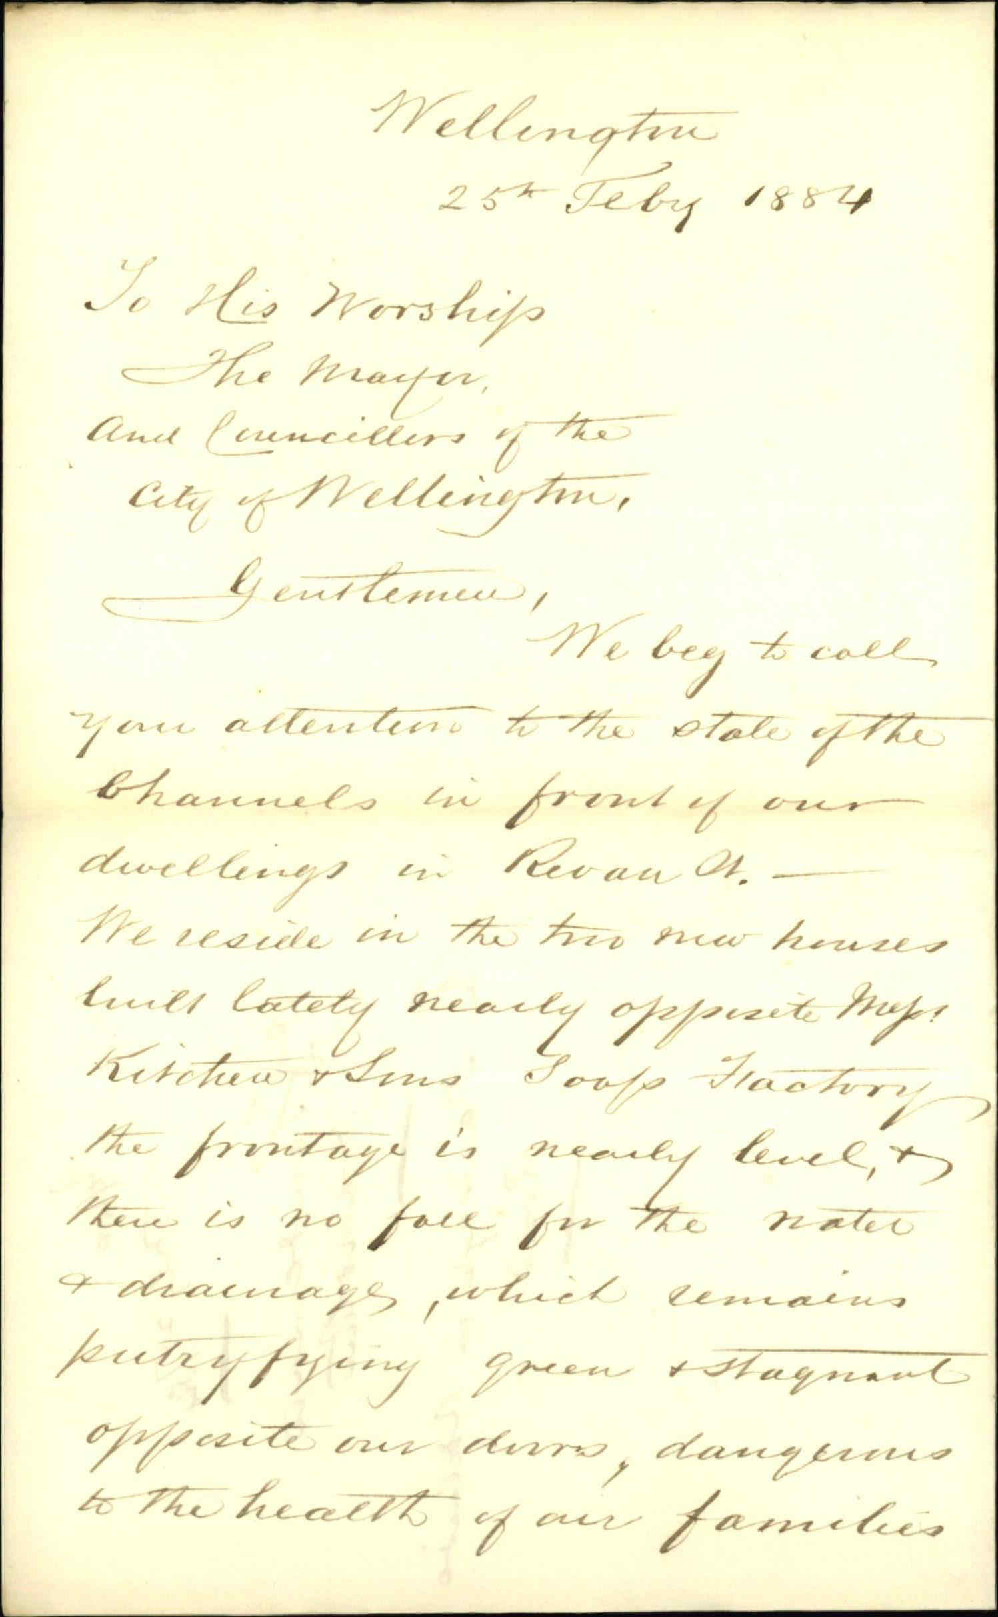 Wellington
25th Feby 1884
To His Worship
The Mayor,
And Councillors of the
City of Wellington,
Gentlemen,
We beg to call
your attention to the state of the
Channels in front of our
dwellings in Revan St. —
We reside in the two new houses
built lately nearly opposite Messrs
Kitchen & Sons Soap Factory
the frontage is nearly level, &
there is no fall for the water
& drainage, which remains
putryfying green & stagnant
opposite our doors, dangerous
to the health of our families